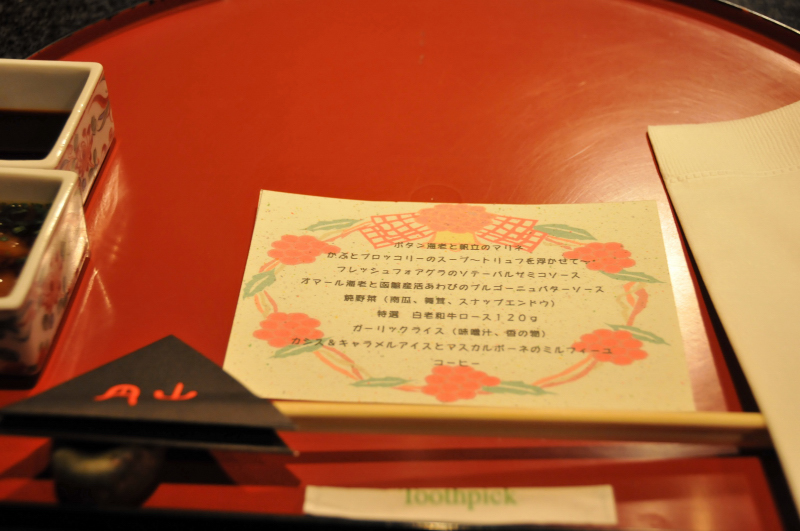 ボタン海老と帆立のマリネ
かぶとブロッコリーのスープ～トリュフを浮かせて～
フレッシュフォアグラのソテーバルサミコソース
オマール海老と函館産活あわびのブルゴーニュバターソース
焼野菜（南瓜、蓮質、スナップエンドウ）
特選　白老和牛ロース１２０ｇ
ガーリックライス（味噌汁、香の物）
カシス＆キャラメルアイスとマスカルポーネのミルフィーユ
コーヒー
Toothpick